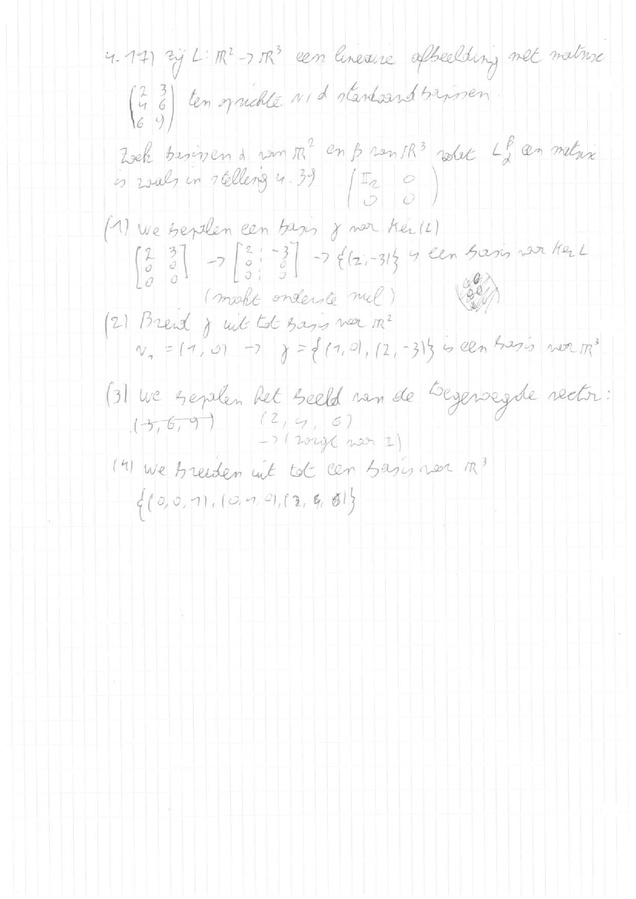 4.17) Zij L: ℝ² → ℝ³ een lineaire afbeelding met matrix
(2 3
4 6
6 9) ten opzichte v/d standaardbasissen.
Zoek basissen α van ℝ² en β van ℝ³ zodat L_α^β een matrix
is zoals in stelling 4.39 (I_r 0
0 0)
(1) We bepalen een basis γ voor Ker(L)
[2 3
0 0
0 0] → [2 : -3
0 : 0
0 : 0] → {(2,-3)} is een basis voor Ker L
(maakt onderste nul)
(2) Breid γ uit tot basis voor ℝ²
v₁ = (1,0) → γ = {(1,0), (2,-3)} is een basis voor ℝ³
(3) We bepalen het beeld van de toegevoegde vector:
(3,6,9) (2,4,6)
→ (zorgt voor I)
(4) We breiden uit tot een basis voor ℝ³
{(0,0,1),(0,1,0),(2,4,6)}